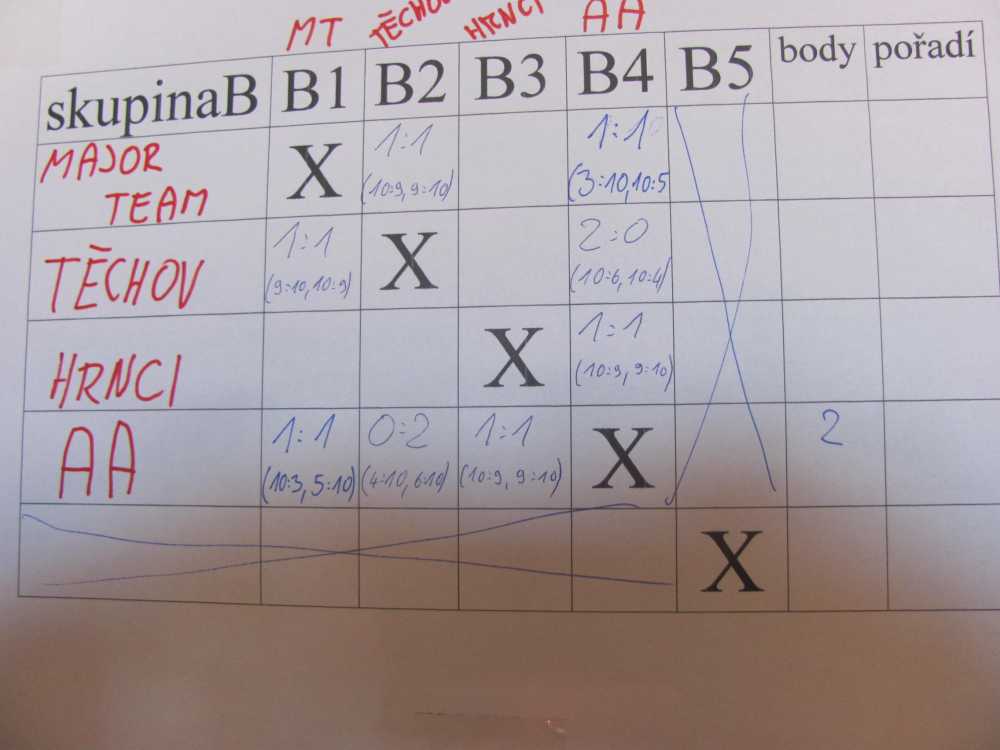 MT TĚCHOV HRNCI AA
skupinaB B1 B2 B3 B4 B5 body pořadí
MAJOR TEAM X 1:1 1:1
(10:9, 9:10) (3:10, 10:5
TĚCHOV 1:1 X 2:0
(9:10, 10:9) (10:6, 10:4)
HRNCI X 1:1
(10:9, 9:10)
AA 1:1 0:2 1:1 X 2
(10:3, 5:10) (4:10, 6:10) (10:9, 9:10)
X